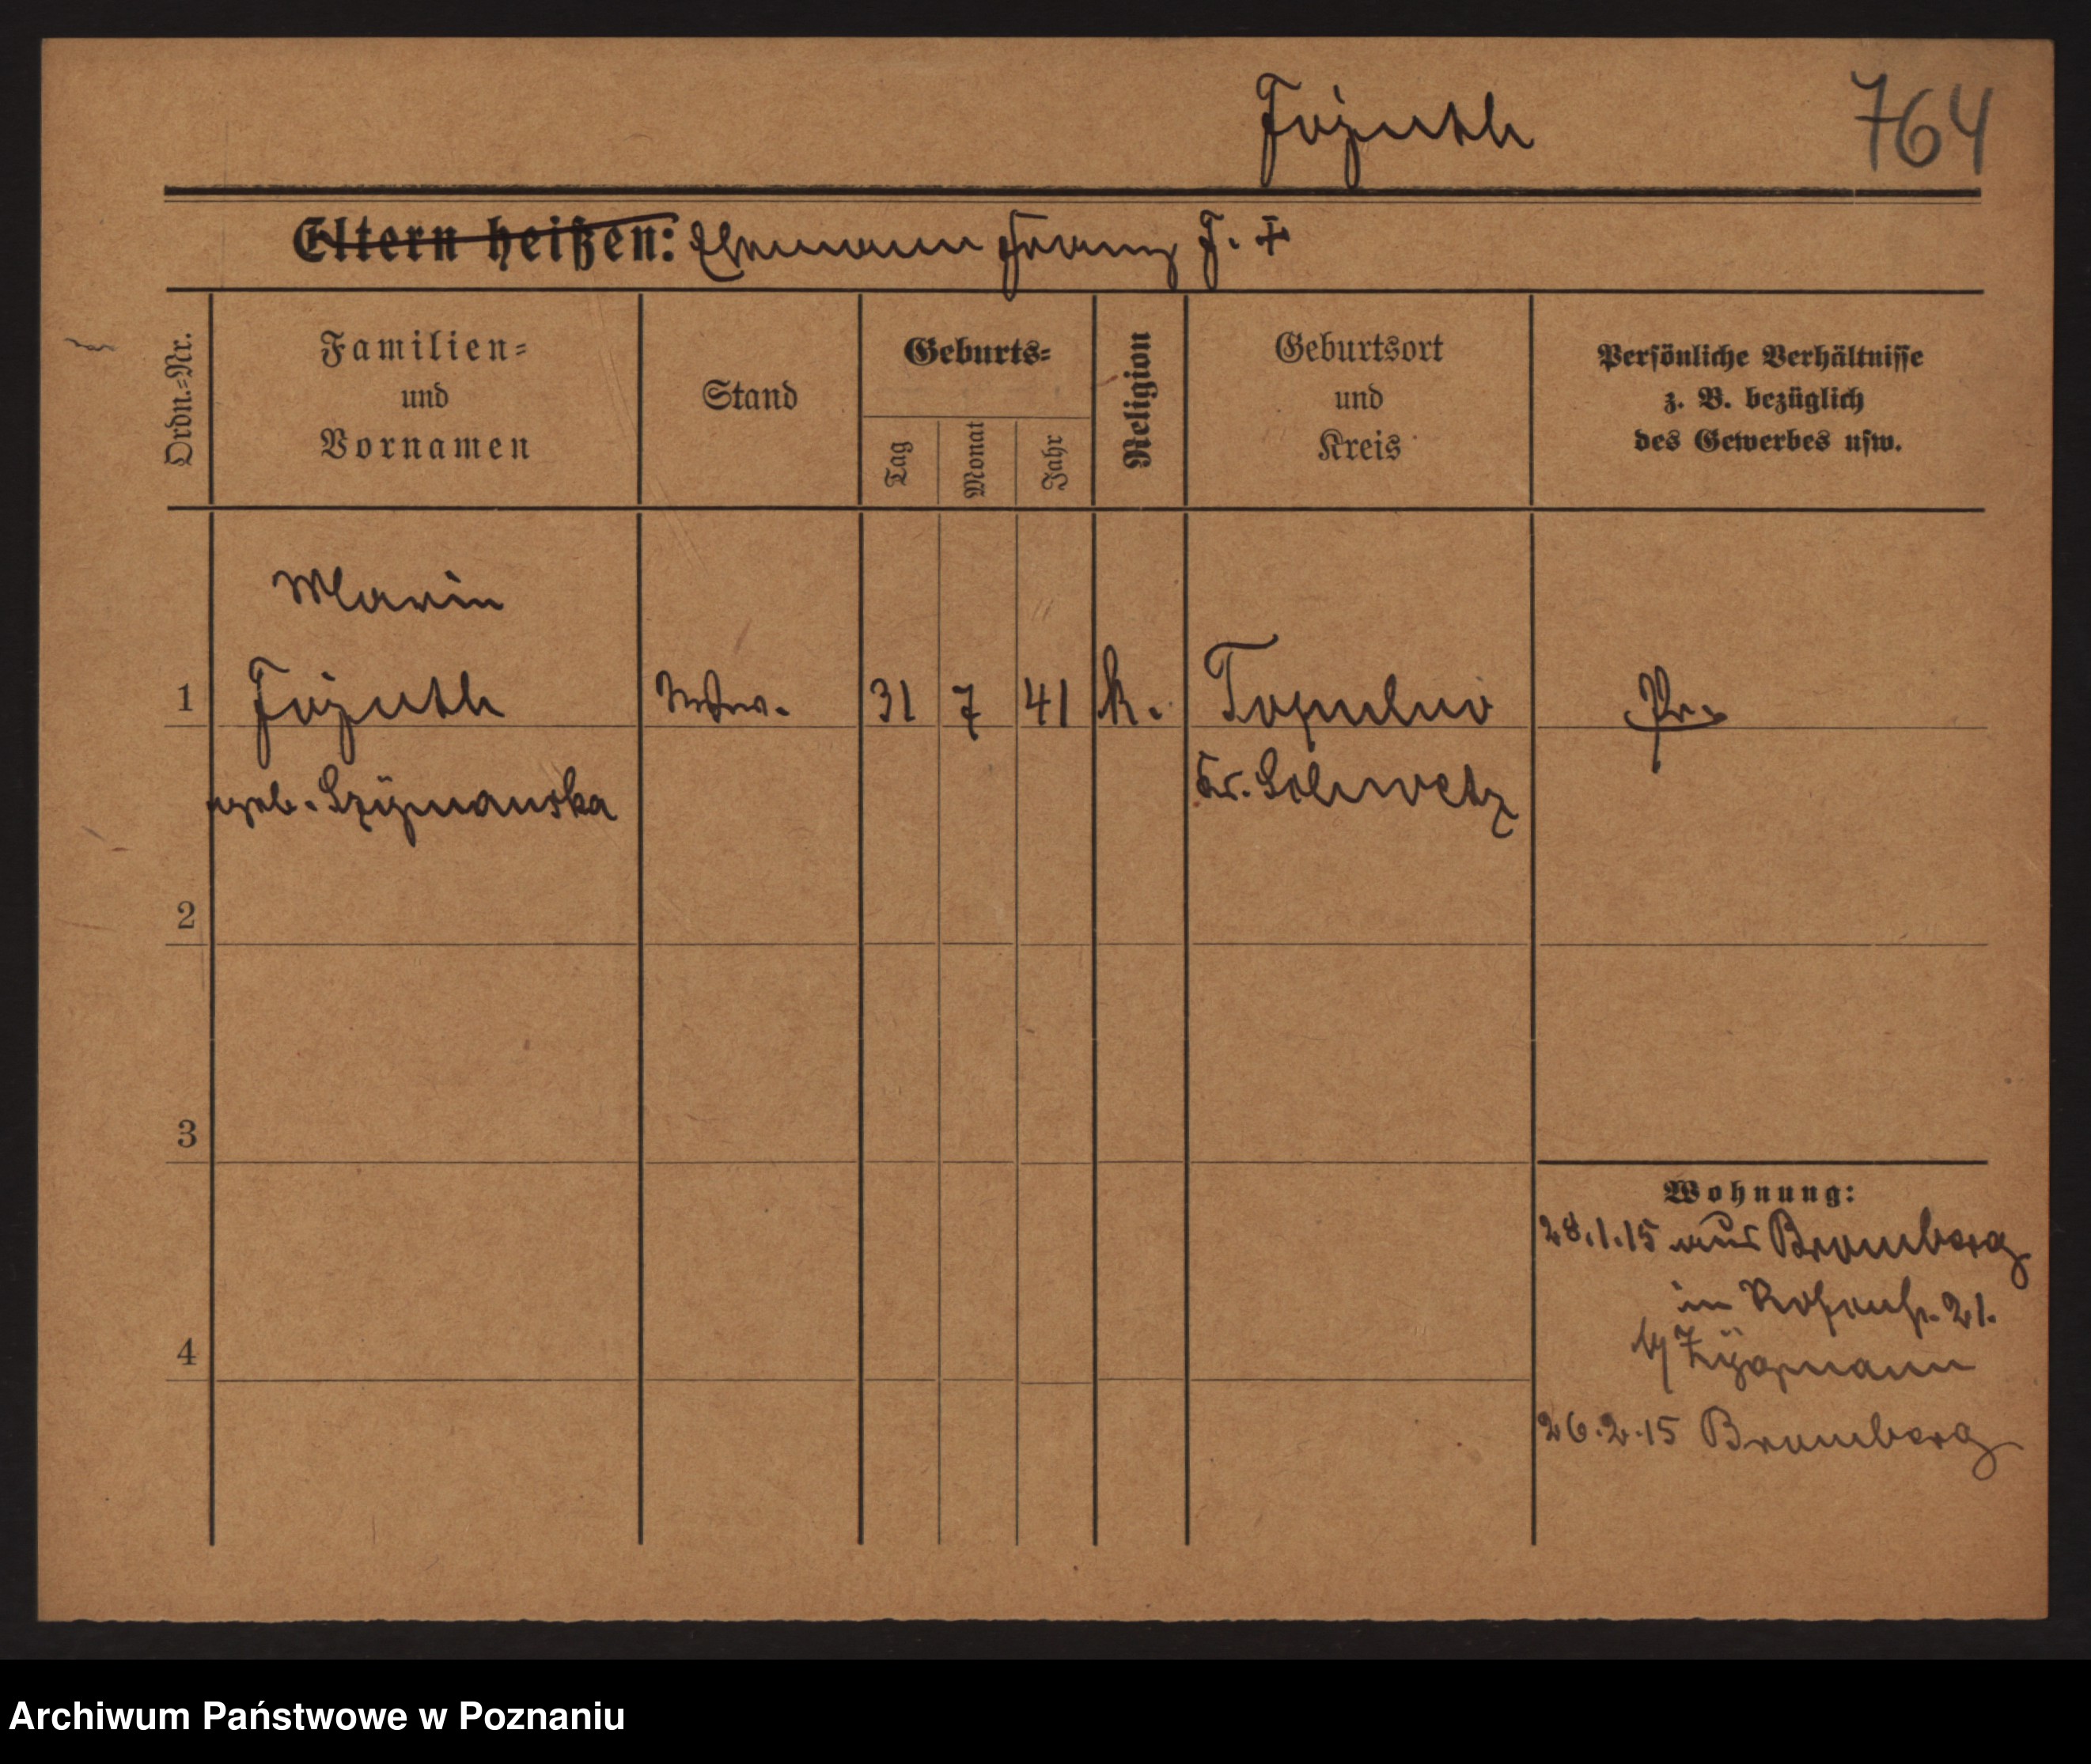 764
Eltern heißen: Ehemann Franz J. +
Ordn.=Nr.
Familien=
und
Vornamen
Stand
Geburts=
Tag
Monat
Jahr
Religion
Geburtsort
und
Kreis
Persönliche Verhältnisse
z. B. bezüglich
des Gewerbes usw.
Maria
1 Wtw. 31 7 41 k. Topolno Pr.
geb. Szÿmanska Kr. Schwetz
2
3
4
Wohnung:
28.1.15 aus Bromberg
in Rosenstr. 21.
26.2.15 Bromberg
Archiwum Państwowe w Poznaniu